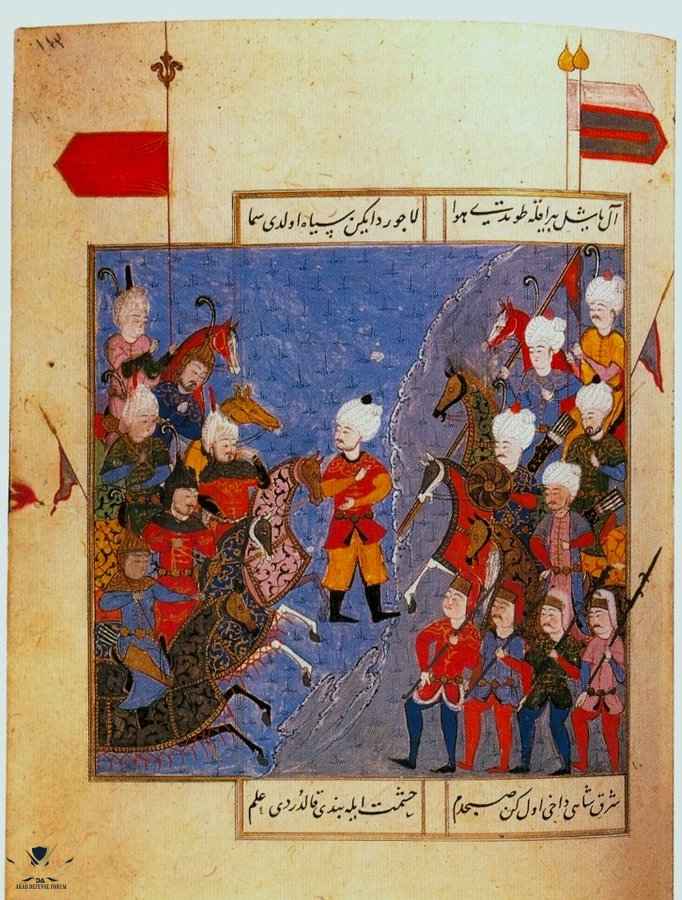 آل یاشل بیراقله طوندی هوا لاجورد ایکن سیاه اولدی سما
شرق شاهی داخی اول کن صبحدم حشمت ایله بندی قالدردی علم
DA
ARAB DEFENSE FORUM